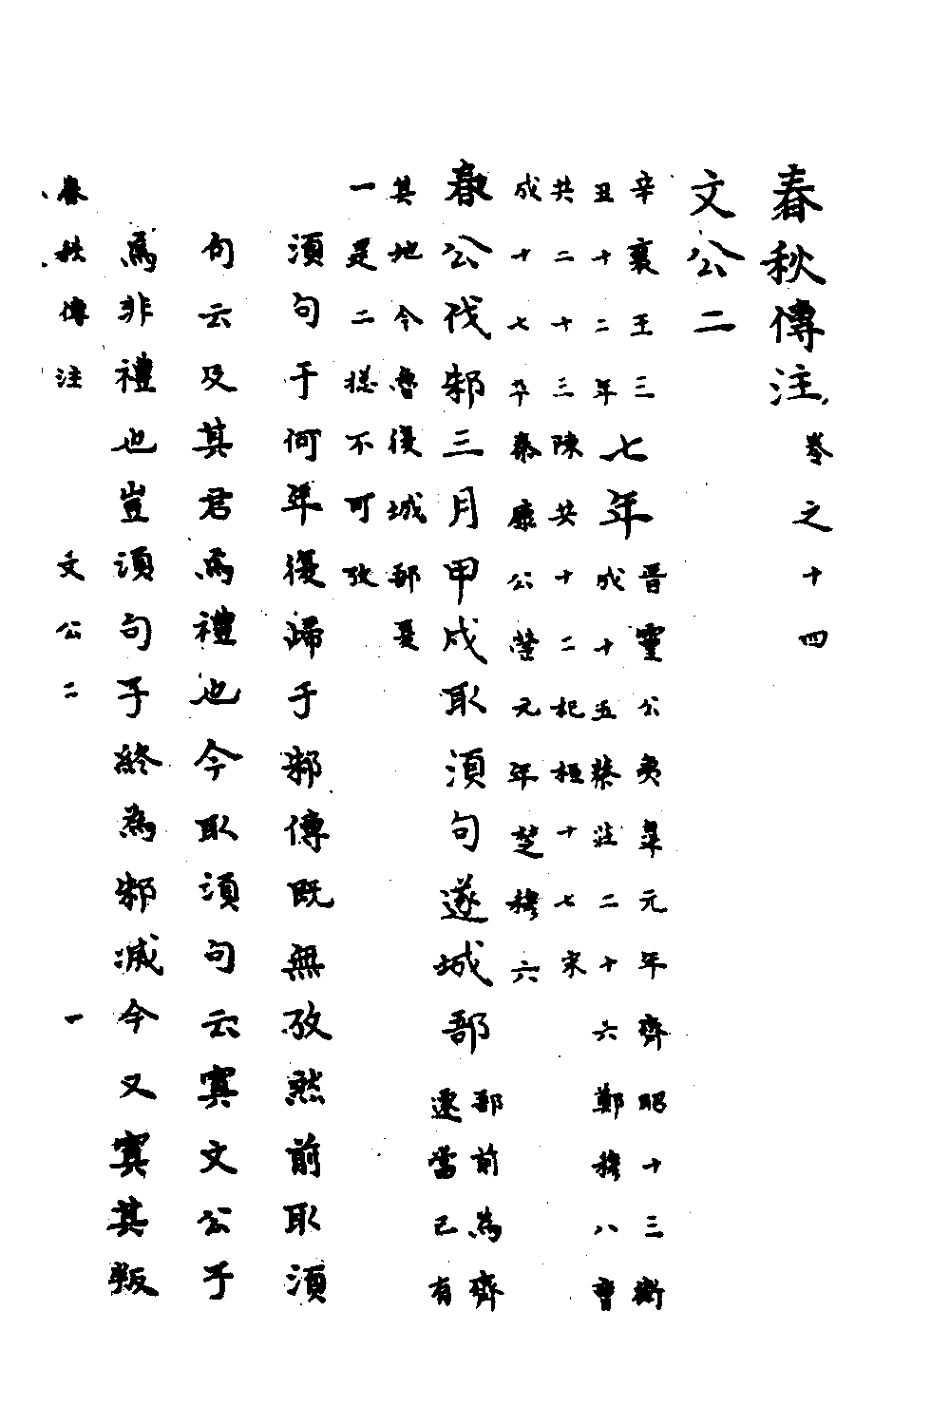 春秋傳注卷之十四
文公二
辛襄王三
丑十二年
七年
晋靈公夷皐元年齊昭十三衛
成十五蔡莊二十六鄭穆八曹
共二十三陳共十二杞桓十七宋
成十七卒秦康公罃元年楚穆六
春公伐邾三月甲戌取須句遂城郚
郚前為齊
遷當已有
其地今魯復城郚是
一是二㨿不可攷
須句于何年復歸于邾傳既無攷然前取須
句云及其君為禮也今取須句云寘文公子
為非禮也豈須句子終為邾滅今又寘其叛
春秋傳注
文公二
一